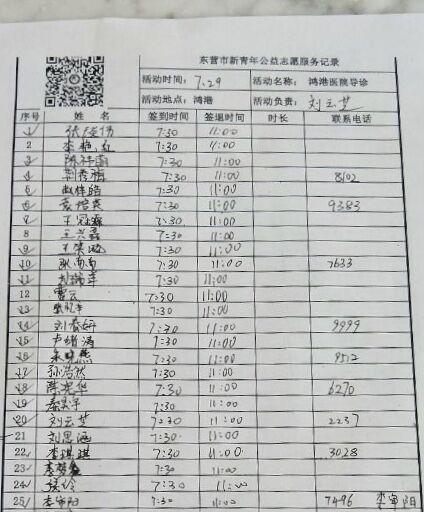 东营市新青年公益志愿服务记录
活动时间: 7.29 活动名称: 鸿港医院导诊
活动地点: 鸿港 活动负责: 刘云芝
序号 姓 名 签到时间 签退时间 时长 联系电话
1 7:30 11:00
2 李艳红 7:30 11:00
3 7:30 11:00
4 7:30 11:00 8102
5 7:30 11:00
6 7:30 11:00 9383
7 王冠霖 7:30 11:00
8 王兴磊 7:30 11:00
9 7:30 11:00
10 7:30 11:00 7633
11 7:30 11:00
12 曹云 7:30 11:00
13 7:30 11:00
14 刘春妍 7:30 11:00 9999
15 卢绪涛 7:30 11:00
16 朱晓燕 7:30 11:00 9512
17 孙浩然 7:30 11:00
18 陈光华 7:30 11:00 6270
19 秦实宇 7:30 11:00
20 刘云芝 7:30 11:00 2237
21 刘思涵 7:30 11:00
22 李琪琪 7:30 11:00 3028
23 7:30 11:00
24 7:30 11:00
25 李富阳 7:30 11:00 7496 李富阳